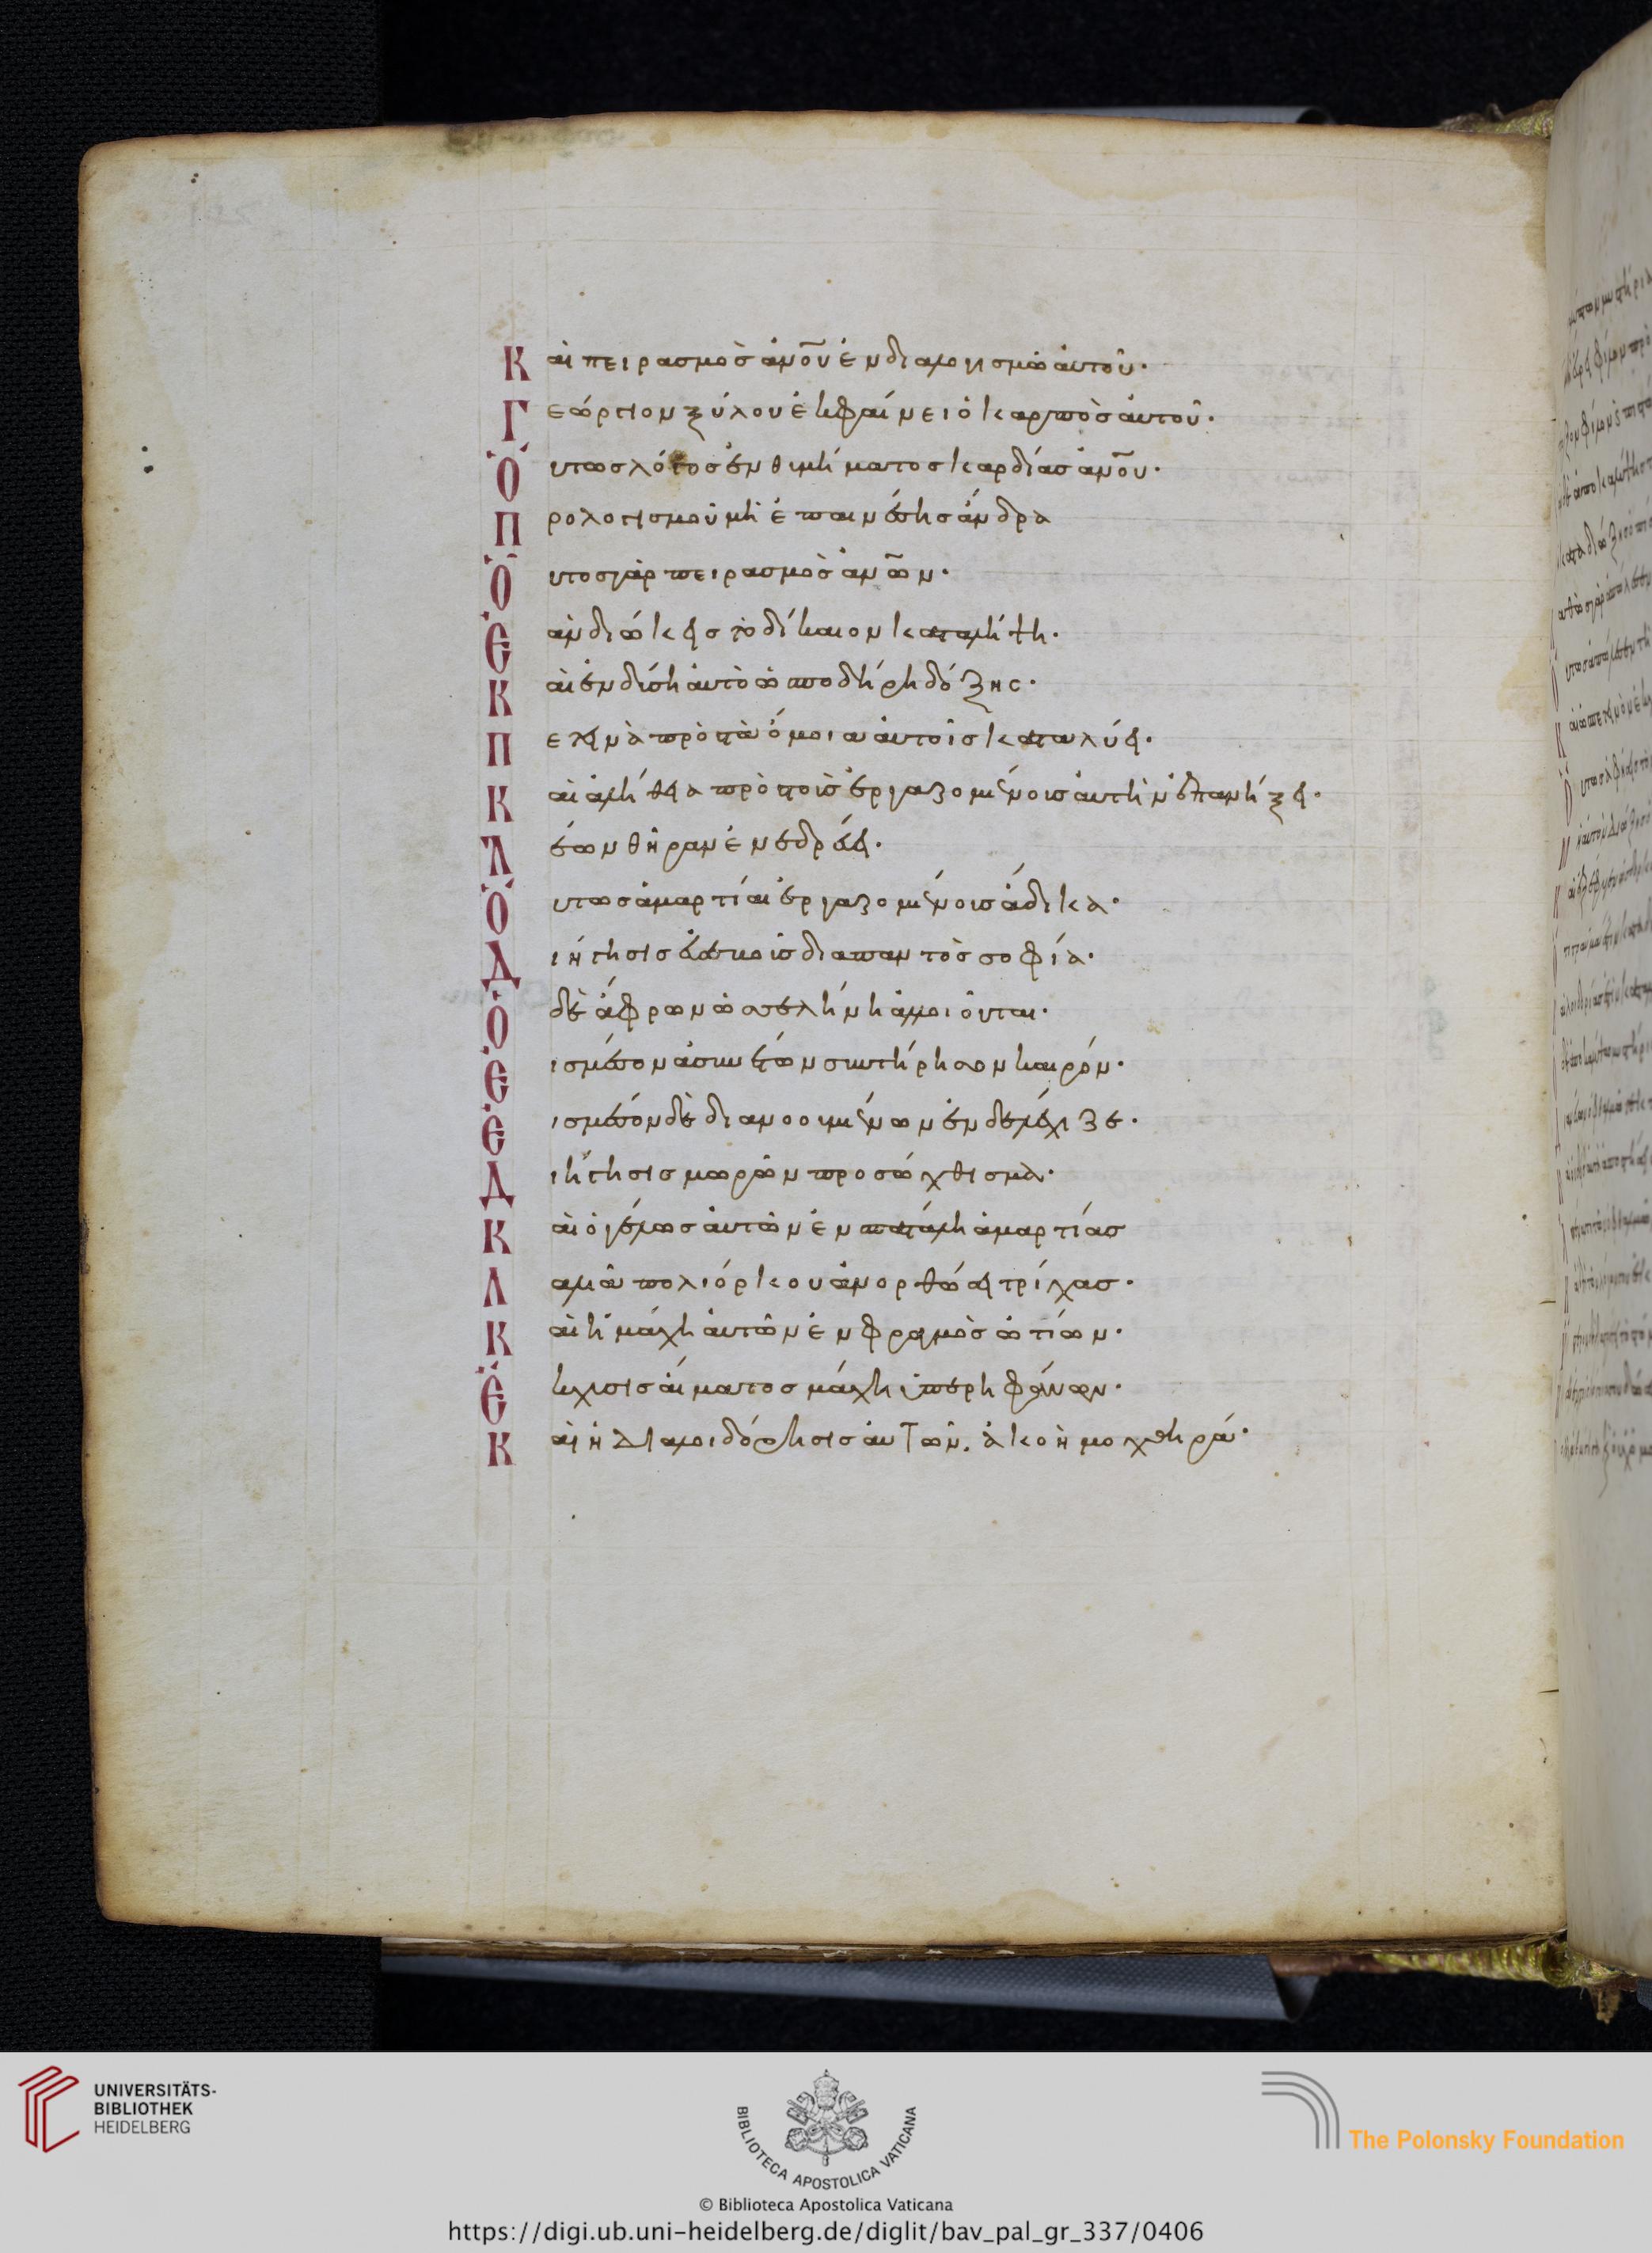 Και πειρασμὸσ ἀν̅ου ἐν διαλογισμῶ ἀυτοῦ·
Γεώργιον ξύλου ἐκφαίνει ὁ καρπὸσ ἀυτοῦ·
Ὅυτωσ λόγοσ ἐνθυμήματοσ καρδίασ ἀν̅ου·
Προλογισμοῦ μὴ ἐπαινέσησ ἄνδρα
Ὅυτοσ γὰρ πειρασμὸσ ἀν̅ων·
Ἐὰν διώκεισ τὸ δίκαιον καταλήψη·
Καὶ ἐνδύση ἀυτὸ ὡσ ποδήρη δόξησ·
Πετεινὰ πρὸσ τὰ ὅμοια ἀυτοῖσ καταλύει·
Καὶ ἀλήθεια πρὸσ τοὶσ ἐργαζομένοισ ἀυτὴν ἐπανήξει·
Λέων θῆραν ἐνεδρέυει·
Ὅυτωσ ἁμαρτίαι ἐργαζομένοισ ἄδικα·
Διήγησισ ἐυσεβοῖσ διαπαντὸσ σοφία·
Ὁ δὲ ἄφρων ὡσ σελήνη ἀλλοιοῦται·
Ἐισ μέσον ἀσυνέτων συντήρησον καιρόν·
Ἐισ μέσον δὲ διανοουμένων ἐνδελέχιζε·
Διήγησισ μωρῶν προσώχθισμα·
Καὶ ὁ γέλωσ ἀυτῶν ἐν σπατάλη ἁμαρτίασ
Λαλιὰ πολυόρκου ἀνορθώσει τρίχασ·
Καὶ ἡ μάχη ἀυτῶν ἐμφραγμὸσ ὠτίων·
Ἔκχυσισ ἅιματοσ μάχη ὑπερηφάνων·
Καὶ ἡ διαλοιδόρησισ ἀυτῶν. ἀκοὴ μοχθηρά·
UNIVERSITÄTS-
BIBLIOTHEK
HEIDELBERG
BIBLIOTECA APOSTOLICA VATICANA
The Polonsky Foundation
© Biblioteca Apostolica Vaticana
https://digi.ub.uni-heidelberg.de/diglit/bav_pal_gr_337/0406